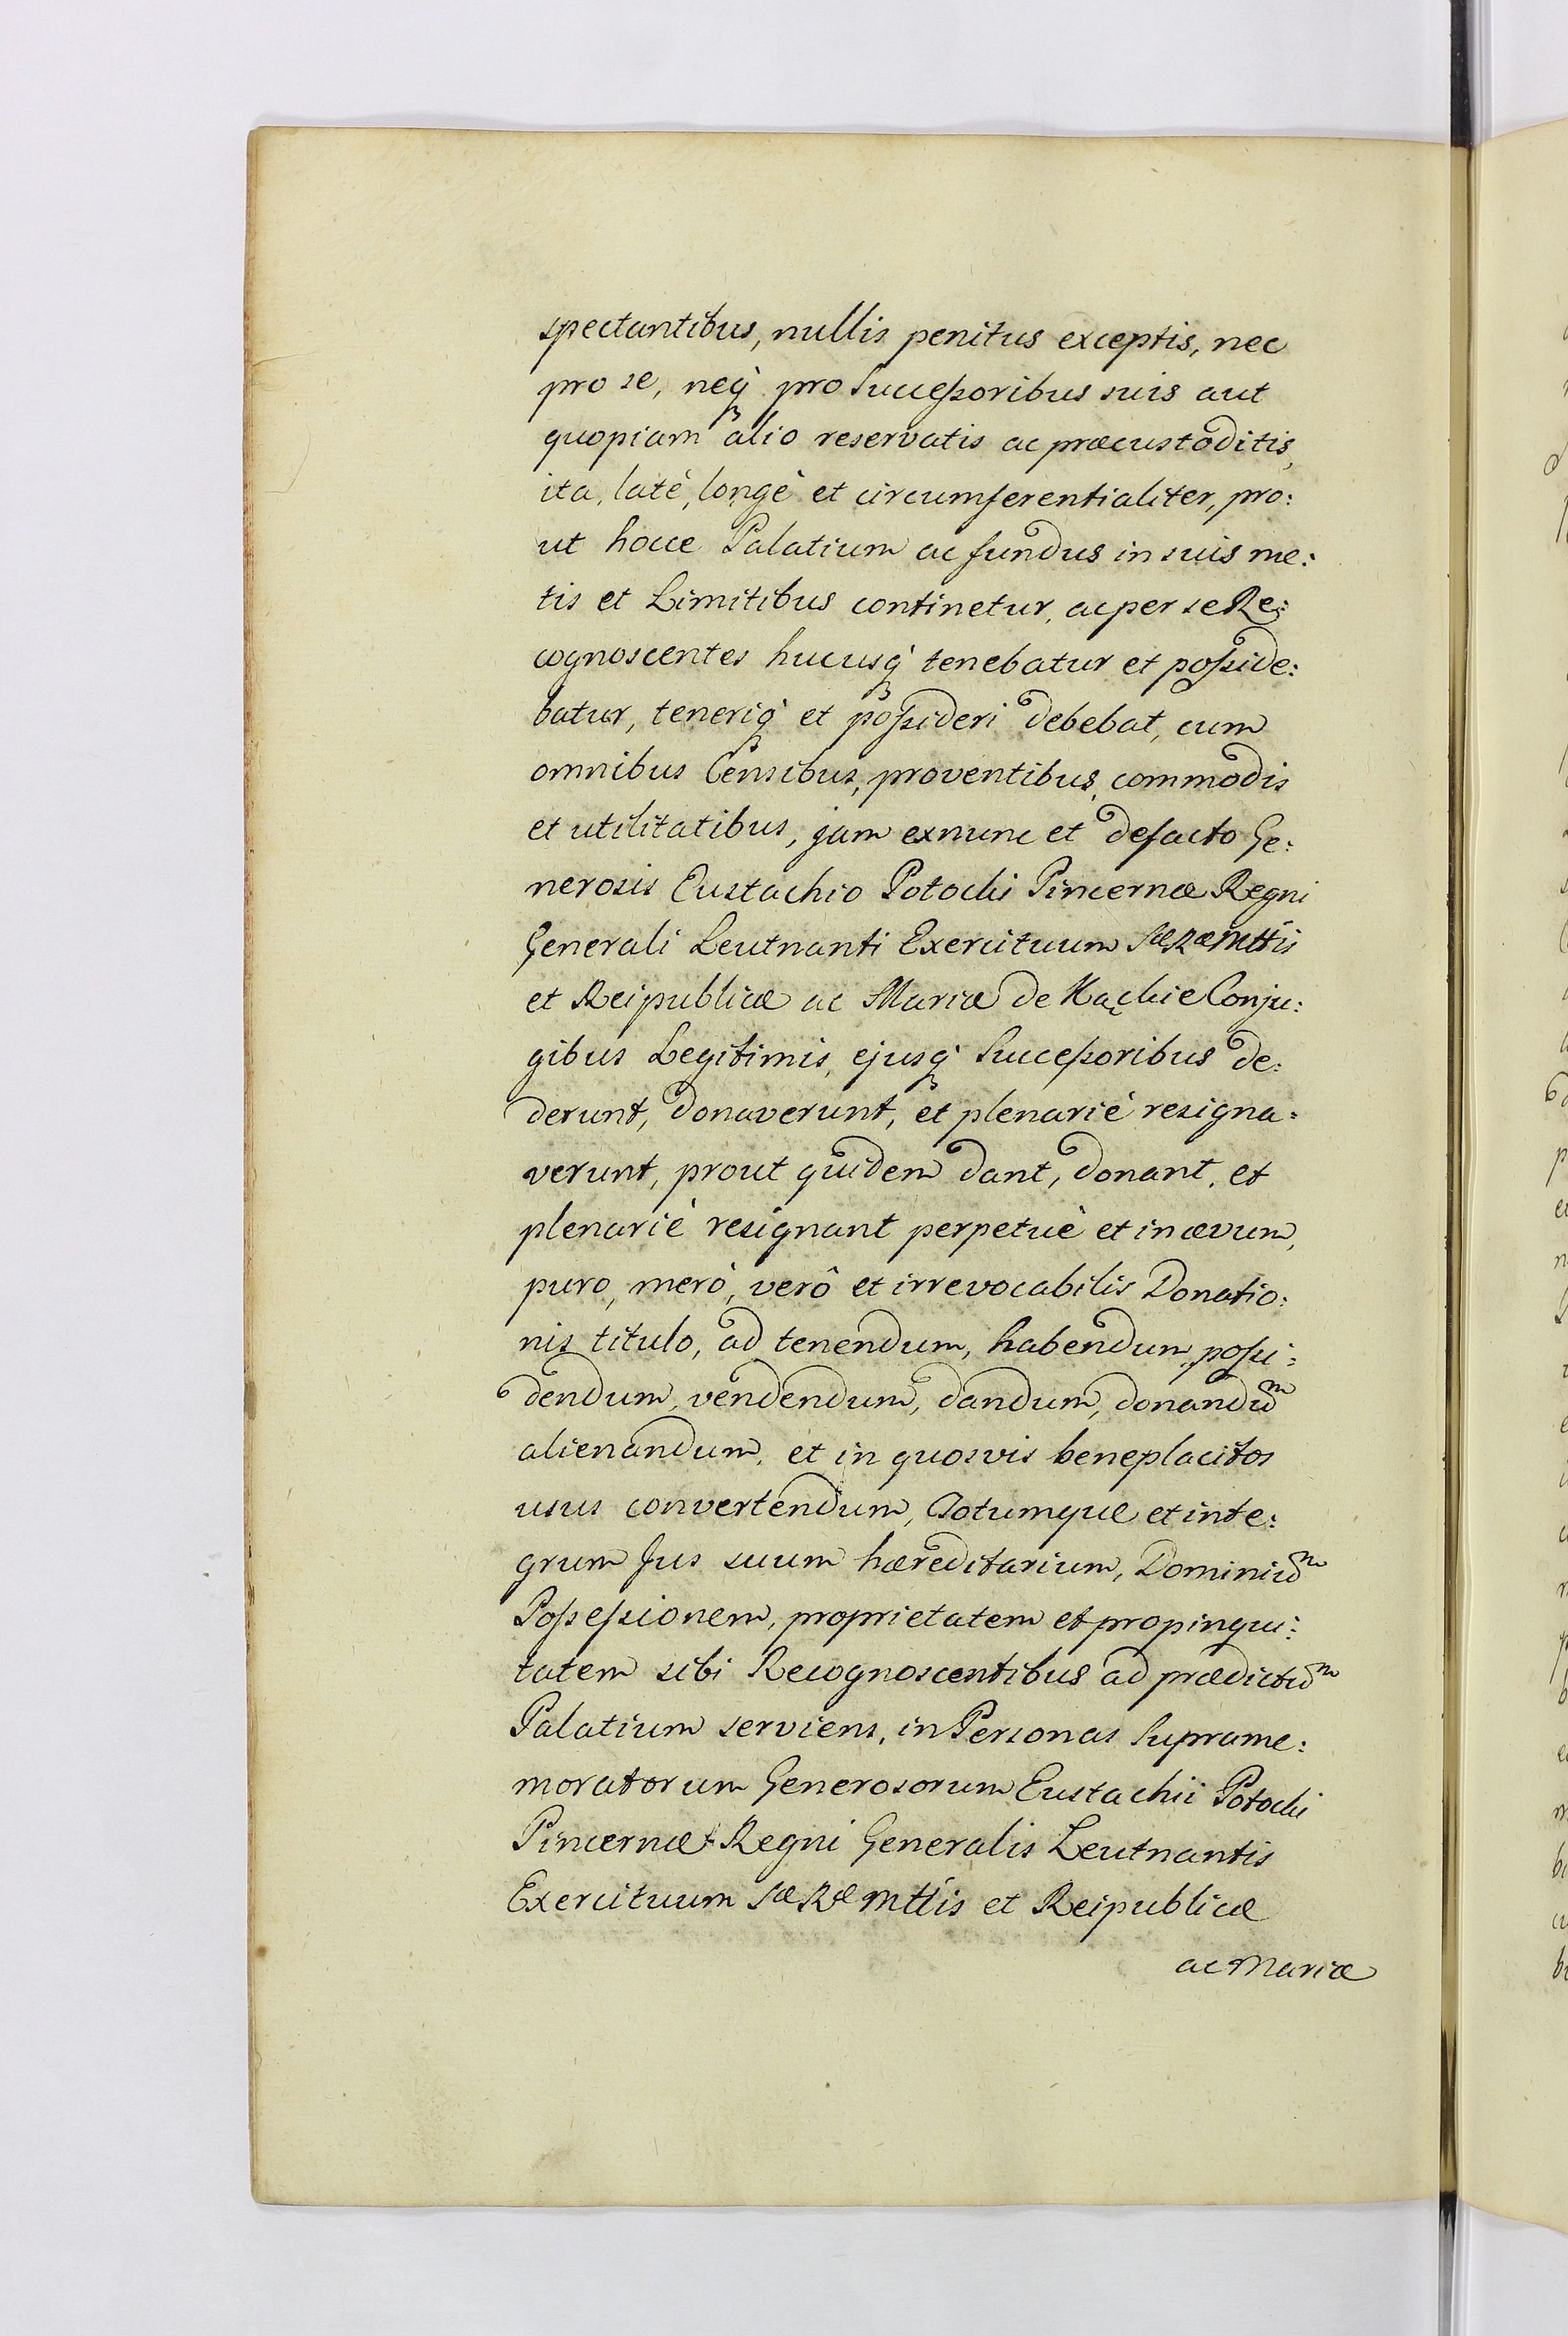 spectantibus, nullis penitus exceptis, nec
pro se, neq́ pro Successoribus suis aut
quopiam alio reservatis ac præcustoditis,
ita, latè, longè et circumferentialiter, pro:
ut hocce Palatium ac fundus in suis me:
tis et Limitibus continetur, ac per se Re:
cognoscentes hucusq́ tenebatur et posside:
batur, teneriq́ et possideri debebat, cum
omnibus Censibus, proventibus, commodis
et utilitatibus, jam exnunc et defacto Ge:
nerosis Eustachio Potocki Pincernæ Regni
Generali Leutnanti Exercituum Sæ Ræ Mttis
et Reipublicæ ac Mariæ de Kąckie Conju:
gibus Legitimis, ejusq́ Successoribus de:
derunt, donaverunt, et plenariè resigna:
verunt, prout quidem dant, donant, et
plenariè resignant perpetuè et in ævum,
puro, merò, verô et irrevocabilis Donatio:
nis titulo, ad tenendum, habendum, possi:
dendum, vendendum, dandum, donandum
alienandum, et in quosvis beneplacitos
usus convertendum, Totumque et inte:
grum Jus suum hæreditarium, Dominium
Possessionem, proprietatem et propinqui:
tatem sibi Recognoscentibus ad prædictum
Palatium serviens, in Personas Suprame:
moratorum Generosorum Eustachii Potocki
Pincernæ Regni Generalis Leutnantis
Exercituum Sæ Ræ Mttis et Reipublicæ
ac Mariæ